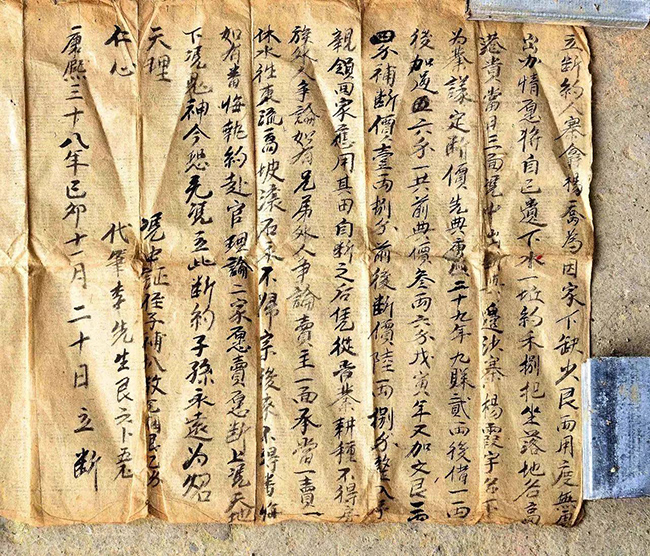 立断约人寨會楊喬為因家下缺少艮两用度無
出办情愿将自己遗下水一坵約禾捌把坐落地名高
港貴當日三面凭中出断與邊沙寨楊霞宇名下
为業議定断價先典康熙二十九年九賖貳两後借一两
後加退六分一共前典價叁两六分戊寅年又加文艮一两
四分補断價壹两捌分前後断價陸两捌分整入手
親領回家應用其田自断之后凭從買業耕種不得
族外人争論如有兄弟外人争論賣主一面承當一賣一
休水往東流高坡滚石永不歸宗後来不得番悔
如有番悔執約赴官理論二家愿賣愿断上凭天地
下凭鬼神今恐无凭立此断約子孫永遠为炤
天理 凭中証侄子補
仁心 代筆李先生艮六卜五
康熙三十八年己卯十一月二十日立断